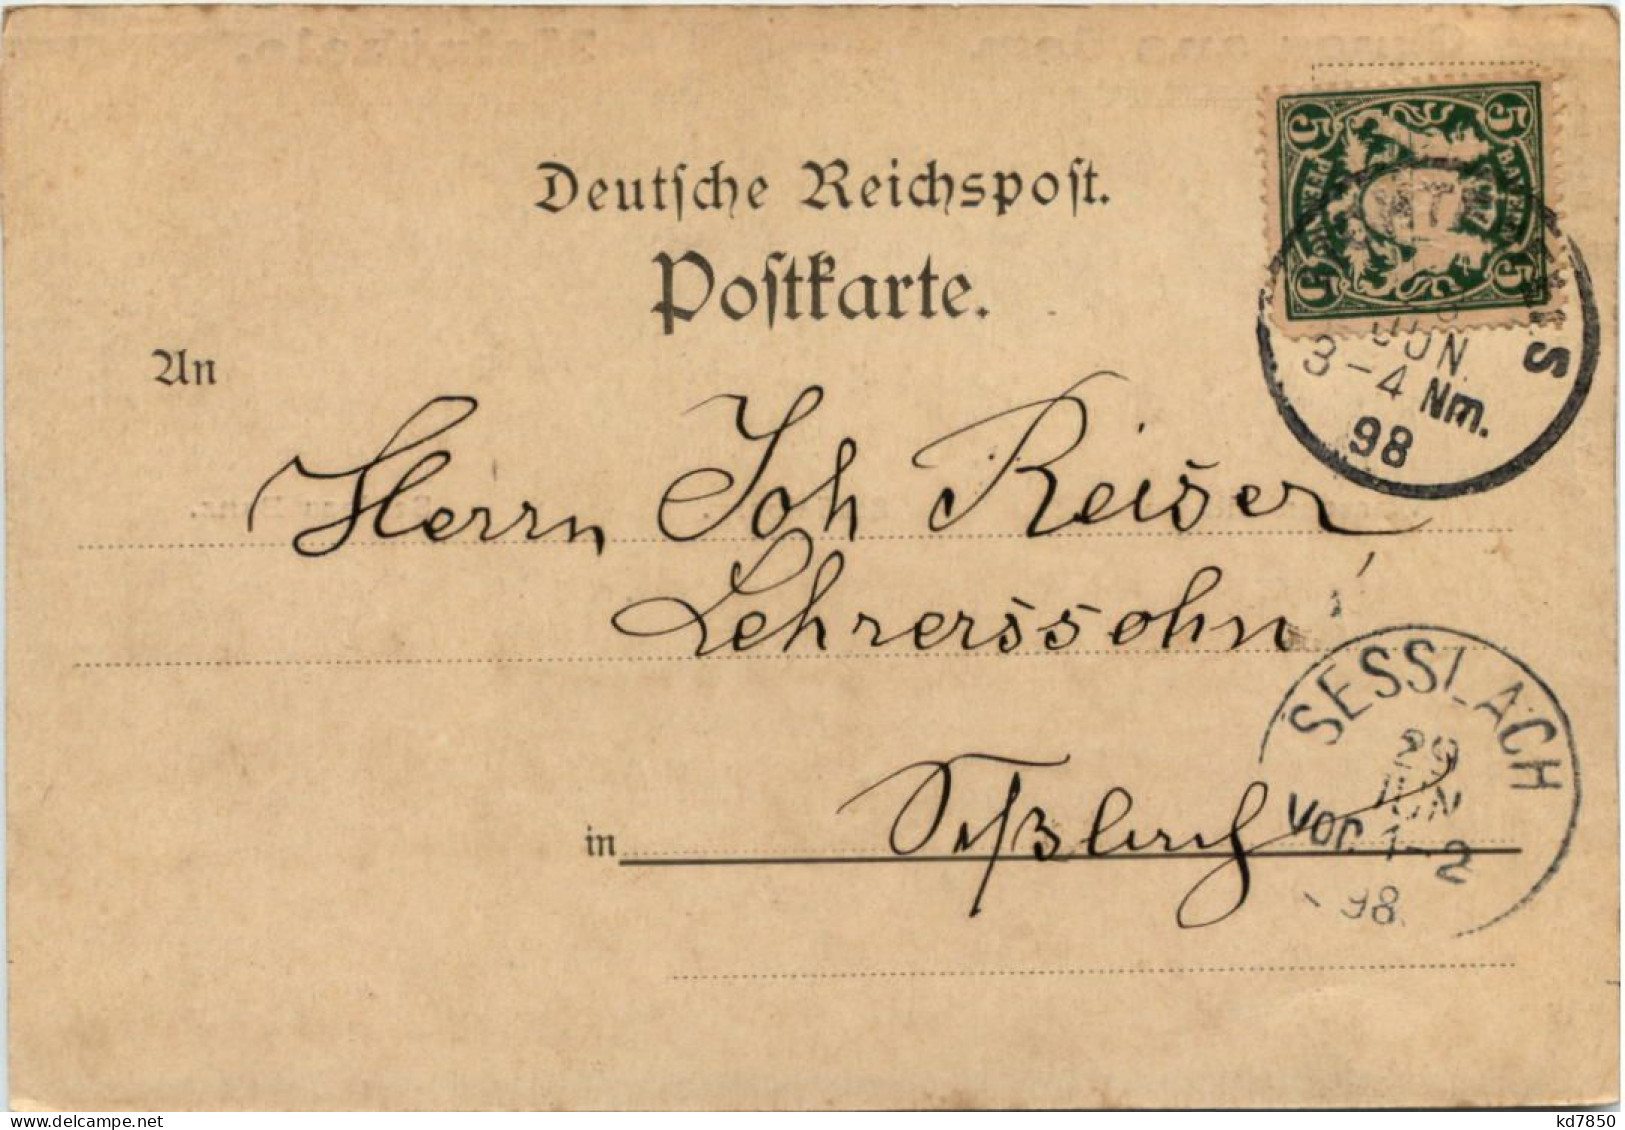 Deutsche Reichspost.
Postkarte.
5 5
BAYERN
5 5
JUN
3-4 Nm.
98
An
Herrn Joh Reiser
Lehrerssohn
in Seßlach
SESSLACH
29
JUN
Vor. 1-2
98
www.delcampe.net
kd7850